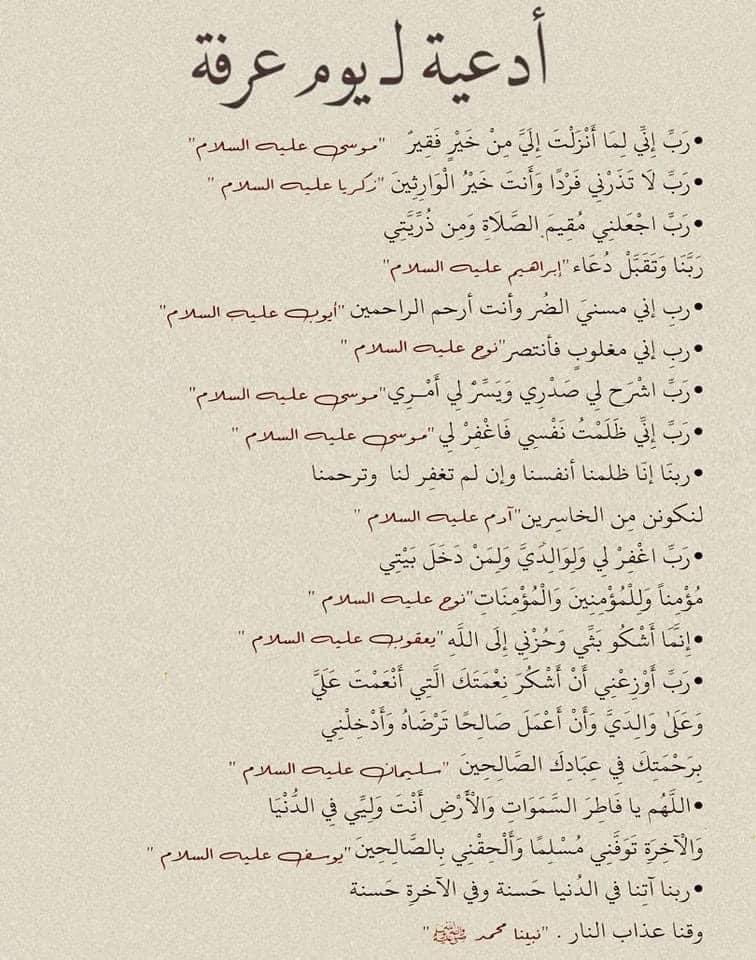 أدعية لـ يوم عرفة
•رَبِّ إِنِّي لِمَا أَنْزَلْتَ إِلَيَّ مِنْ خَيْرٍ فَقِيرٌ "موسى عليه السلام"
•رَبِّ لَا تَذَرْنِي فَرْدًا وَأَنتَ خَيْرُ الْوَارِثِينَ "زكريا عليه السلام "
•رَبِّ اجْعَلنِي مُقِيمَ الصَّلَاةِ وَمِن ذُرِّيَّتِي
رَبَّنَا وَتَقَبَّلْ دُعَاء "إبراهيم عليه السلام"
•ربِ إني مسنيَ الضُر وأنت أرحم الراحمين "أيوب عليه السلام"
•ربِ إني مغلوبٍ فأنتصر "نوح عليه السلام "
•رَبِّ اشْرَح لِي صَدْرِي وَيَسِّرْ لِي أَمْـرِي "موسى عليه السلام"
•رَبِّ إِنِّي ظَلَمْتُ نَفْسِي فَاغْفِرْ لِي "موسى عليه السلام "
•ربنَا إنَا ظلمنا أنفسنا وإن لم تغفِر لنا وترحمنا
لنكونن مِن الخاسِرين "آدم عليه السلام "
•رَبِّ اغْفِرْ لِي وَلِوَالِدَيَّ وَلِمَنْ دَخَلَ بَيْتِي
مُؤْمِناً وَلِلْمُؤْمِنِينَ وَالْمُؤْمِنَاتِ "نوح عليه السلام "
•إِنَّمَا أَشْكُو بَثِّي وَحُزْنِي إِلَى اللَّهِ "يعقوب عليه السلام "
•رَبِّ أَوْزِعْنِي أَنْ أَشْكُرَ نِعْمَتَكَ الَّتِي أَنْعَمْتَ عَلَيَّ
وَعَلَىٰ وَالِدَيَّ وَأَنْ أَعْمَلَ صَالِحًا تَرْضَاهُ وَأَدْخِلْنِي
بِرَحْمَتِكَ فِي عِبَادِكَ الصَّالِحِينَ "سليمان عليه السلام "
•اللَّهُم يا فَاطِرَ السَّمَوَاتِ وَالْأَرْضِ أَنْتَ وَلِيِّي فِي الدُّنْيَا
وَالْآخِرَةِ تَوَفَّنِي مُسْلِمًا وَأَلْحِقْنِي بِالصَّالِحِينَ "يوسف عليه السلام "
•ربنا آتِنا في الدُنيا حَسنة وفي الآخرةِ حَسنة
وقنا عذاب النار . "نبينا محمد ﷺ"